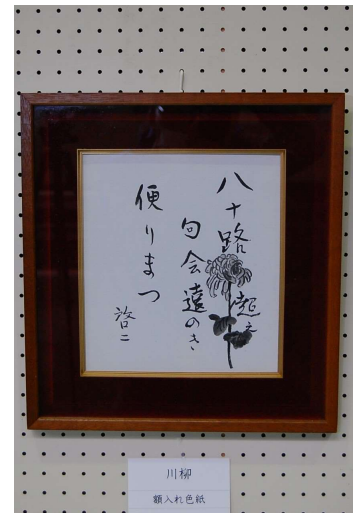 八十路超え
句会遠のき
便りまつ
啓二
川柳
額入れ色紙